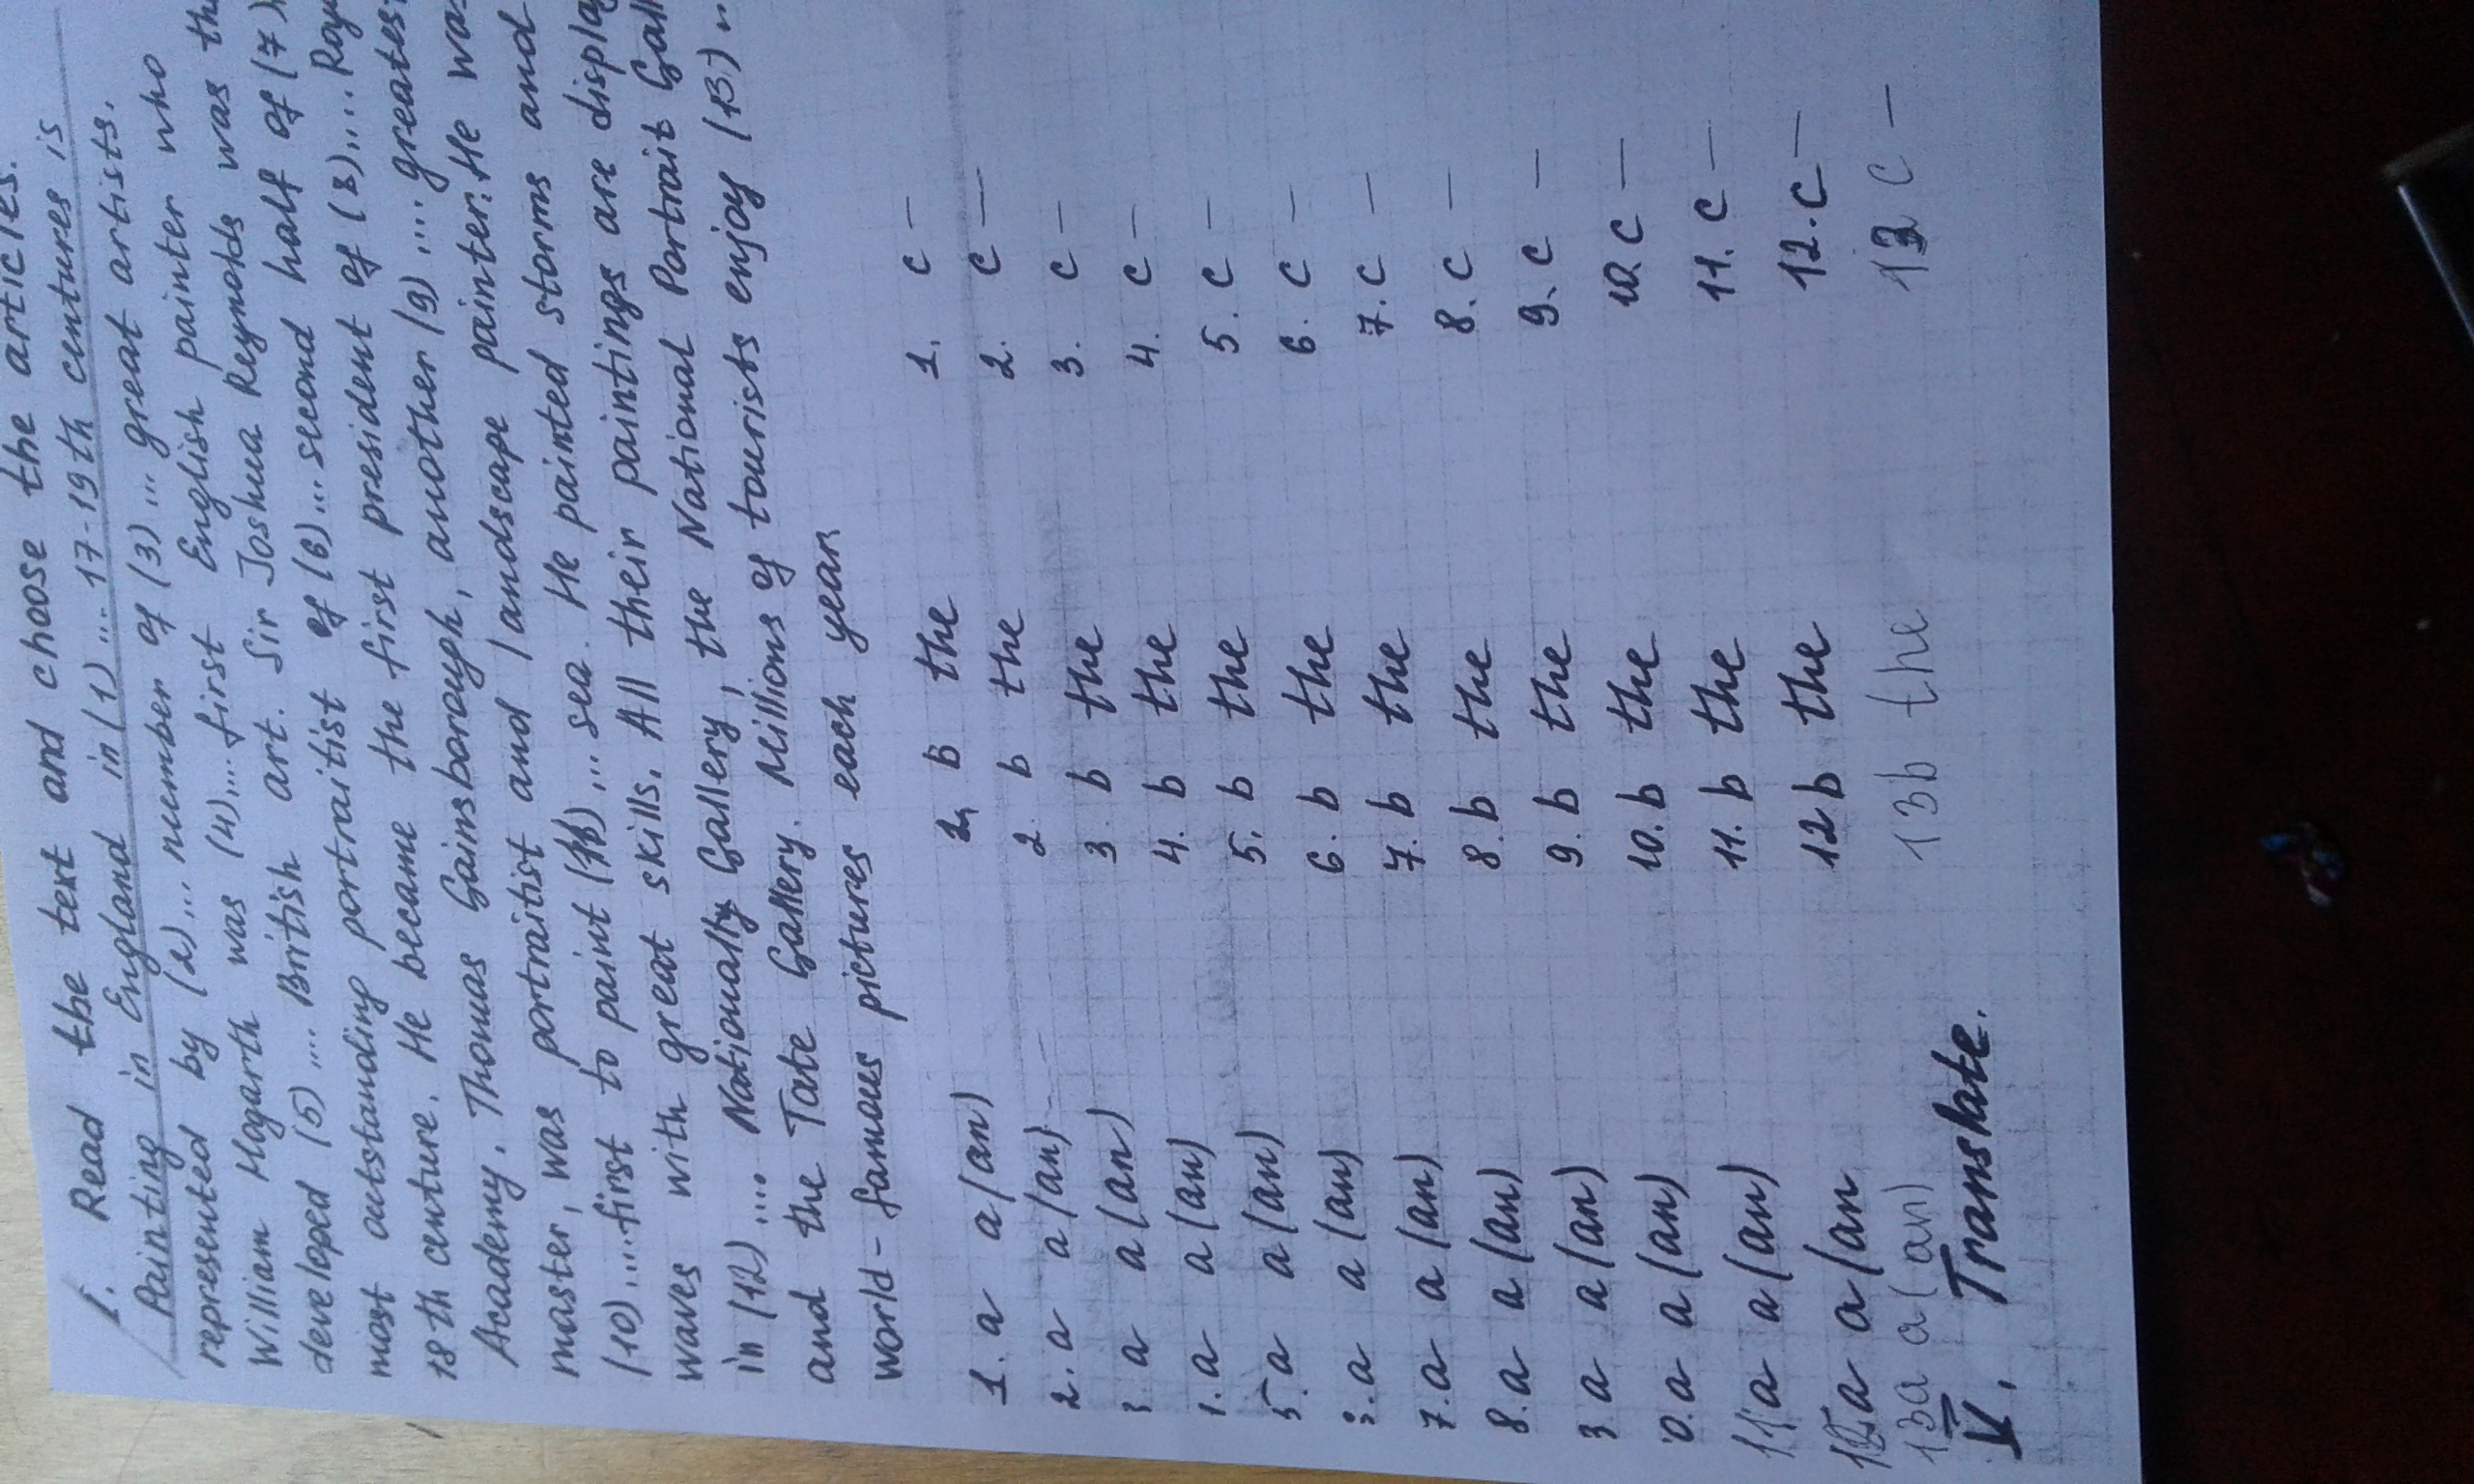 I. Read the text and choose the articles.
Painting in England in (1) ... 17-19th centures is
represented by (2) ... number of (3) ... great artists.
William Hogarth was (4) ... first English painter who
developed (5) .... British art. Sir Joshua Reynolds was the
most outstanding portraitist of (6) ... second half of (7)
18th centure. He became the first president of (8) ...
Academy. Thomas Gainsborough, another (9) .... greatest
master, was portraitist and landscape painter. He was
(10) .... first to paint (11) ... sea. He painted storms and
waves with great skills. All their paintings are
in (12) .... Nationally Gallery, the National Portrait
and the Tate Gallery. Millions of tourists enjoy (13) ..
world-famous pictures each year
1. a a (an) 1. b the 1. c —
2. a a (an) 2. b the 2. c —
a a (an) 3. b the 3. c —
a a (an) 4. b the 4. c —
5. a a (an) 5. b the 5. c —
a a (an) 6. b the 6. c —
7. a a (an) 7. b the 7. c —
8. a a (an) 8. b the 8. c —
9 a a (an) 9. b the 9. c —
0. a a (an) 10. b the 10. c —
11. a a (an) 11. b the 11. c —
12 a a (an 12 b the 12. c —
13 a a (an) 13 b the 13 c —
V. Translate.